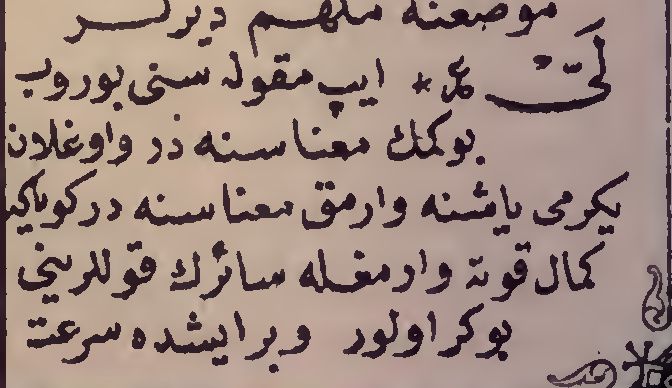 موضعنه ملهم ديرلر
لَتّ * ايپ مقوله سنى بوروب
بوكمك معناسنه در واوغلان
يكرمى ياشنه وارمق معناسنه در كوياكه
كمال قوته وارمغله سائرك قوللرينى
بوكر اولور وبر ايشده سرعت